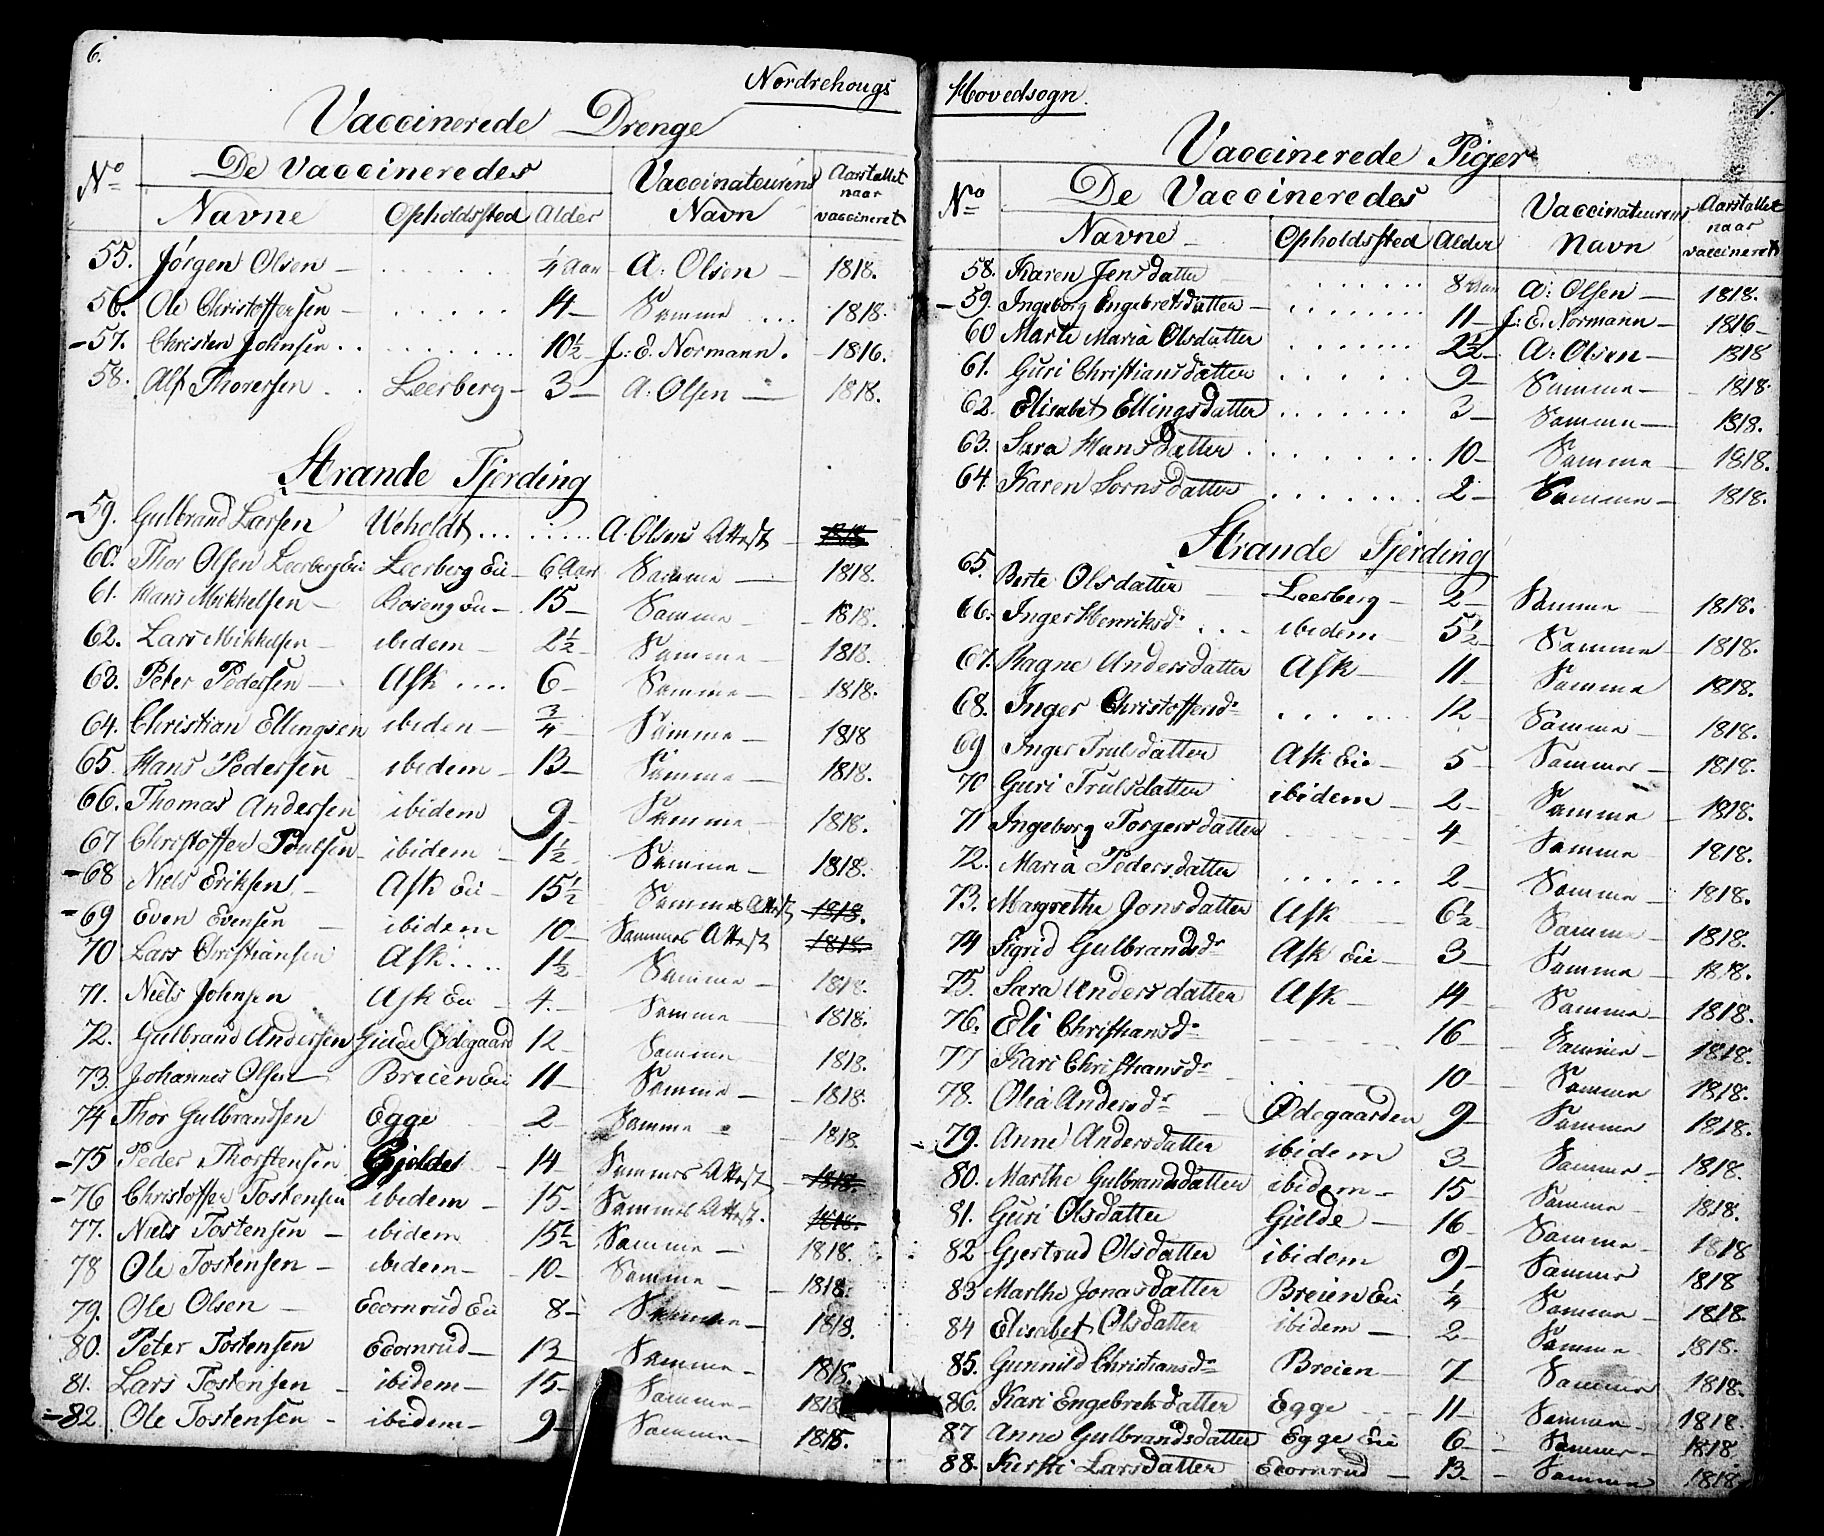 6.
Nordrehougs
Vaccinerede Drenge
No
De Vaccineredes
Navne
Opholdsted
Alder
Vaccinateurens Navn
Aarstallet naar vaccineret
55. Jørgen Olsen – . . . . . . ¼ Aar A: Olsen – 1818.
56. Ole Christoffersen – . . . . . . 14 – Samme ... 1818.
- 57. Christen Johnsen . . . . . . . . 10½ J: E. Normann. – 1816.
58. Alf Thoresen . . Leerberg – 3 – A: Olsen – 1818.
Strande Fjerding
- 59. Gulbrand Larsen Ueholdt ... ..... A. Olsens Attest – 1818
60. Thor Olsen Leerberg Eie Leerberg Eie – 6 Aar Samme – 1818.
61. Hans Mikkelsen – Roseng Eie – 15 – Samme – 1818.
62. Lars Mikkelsen – ibidem – 2½ – Samme – 1818.
63. Peter Pedersen – Ask .... 6 – Samme – 1818.
64. Christian Ellingsen ibidem – ¾ – Samme – 1818
65. Hans Pedersen – ibidem – 13 – Samme – 1818.
66. Thomas Andersen ibidem 9 – Samme – 1818.
67 Christoffer Poulsen – ibidem – 1½ – Samme – 1818.
- 68 Niels Eriksen – Ask Eie – 15½ Sammes Attest 1818.
- 69 Even Evensen – ibidem 10 – Sammes Attest 1818.
70 Lars Christiansen Ask .... 1½ Samme – 1818.
71. Niels Johnsen Ask Eie – 4. – Samme – 1818.
72. Gulbrand Andersen Gielde Ødegaard 12 – Samme – 1818.
73. Johannes Olsen – Breien Eie 11 – Samme – 1818.
74 Thor Gulbrandsen Egge 2 – Samme – 1818.
- 75 Peder Thorstensen Gjeldes – 14 – Sammes Attest – 1818.
- 76 Christoffer Tostensen ibidem – 15 – Sammes Attest. 1818.
77. Niels Tostensen – ibidem 15½ Samme – 1818.
78 Ole Tostensen – ibidem – 10 – Samme – 1818.
79. Ole Olsen – Ecornrud Eie 8 – Samme – 1818.
80. Peter Tostensen Ecornrud – 13 – Samme – 1818.
81. Lars Tostensen – ibidem – 15 – Samme – 1818
- 82. Ole Tostensen – ibidem – 9 – Samme – 1818.
Hovedsogn.
7.
Vaccinerede Piger
No
De Vaccineredes
Navne
Opholdsted
Alder
Vaccinateurens Navn
Aarstallet naar vaccineret
58. Karen Jensdatter . . . . . . . 8 Aar A: Olsen – 1818.
- 59. Ingeborg Engebretsdatter – . . . . . . . 11 – J: E. Normann – 1816 –
60 Marte Maria Olsdatter . . . . . . . 2½ – A: Olsen – 1818
61. Guri Christiansdatter . . . . . 9 – Samme – 1818.
62. Elisabet Ellingsdatter . . . . . . . 3 – Samme – 1818.
63. Sara Hansdatter . . . . . . . 10 – Samme – 1818.
64. Karen Sornsdatter . . . . . . . 2 – Samme – 1818.
Strande Fjerding
65. Berte Olsdatter – Leerberg – 2 – Samme – 1818.
66. Inger Henriksdr . . . ibidem – 5½ – Samme – 1818.
67. Ragne Andersdatter Ask – 11 – Samme 1818.
68. Inger Christoffersdr . . . . . . 12 – Samme – 1818.
69 Inger Trulsdatter Ask Eie – 5 – Sammes – 1818.
70 Guri Trulsdatter ibidem – 2 – Samme – 1818.
71 Ingeborg Torgersdatter 4 – Samme – 1818.
72. Maria Pedersdatter . . . . . . 2 – Samme – 1818.
73. Margrethe Jonsdatter Ask 6½ – Samme – 1818.
74 Sigrid Gulbrandsdr Ask Eie – 3 – Samme – 1818.
75. Sara Andersdatter Ask – 14 – Samme – 1818.
76. Eli Christiansdr 16 – Samme – 1818.
77 Kari Christiansdr 10 – Samme 1818.
78. Olia Andersdr – Ødegaarden 9 – Samme 1818.
79. Anne Andersdatter ibidem 3 – Samme – 1818.
80. Marthe Gulbrandsdatter ibidem – 15 – Samme – 1818.
81. Guri Olsdatter Gielde – 16 – Samme – 1818
82 Gjertrud Olsdatter ibidem 9 – Sammes 1818
83 Marthe Jonasdatter Breien Eie ¼ Samme – 1818.
84 Elisabet Olsdatter ibidem – 2 – Samme – 1818.
85. Gunnild Christiansdr Breien – 7 – Samme 1818.
86. Kari Engebretsdatter Egge – 11 – Samme – 1818.
87 Anne Gulbrandsdatter Egge Eie 6 – Sammes – 1818.
88. Kirsti Larsdatter Ecornrud – 13 – Samme 1818.